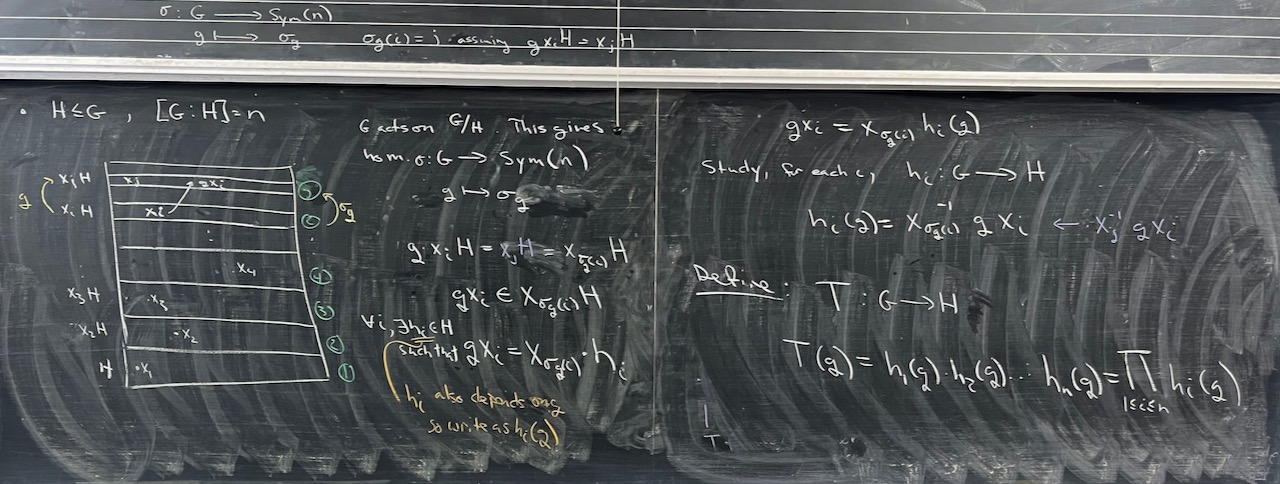 σ: G ⟶ Sym(n)
g ⟼ σ_g    σ_g(i) = j assuming g x_i H = x_j H
• H ≤ G , [G:H] = n
x_j H
x_i H
g
x_j
gx_i
x_i
j
i
σ_g
x_4
4
x_3 H
x_3
3
x_2 H
x_2
2
H
x_1
1
G acts on G/H. This gives
hom. σ: G ⟶ Sym(n)
g ⟼ σ_g
g·x_i H = x_j H = x_{σ_g(i)} H
gx_i ∈ x_{σ_g(i)} H
∀i, ∃h_i ∈ H
such that gx_i = x_{σ_g(i)} · h_i
h_i also depends on g
so write as h_i(g)
gx_i = x_{σ_g(i)} h_i(g)
Study, for each i, h_i: G ⟶ H
h_i(g) = x_{σ_g(i)}^{-1} g x_i ← x_j^{-1} g x_i
Define: T: G ⟶ H
T(g) = h_1(g)·h_2(g)··· h_n(g) = ∏_{1≤i≤n} h_i(g)
T